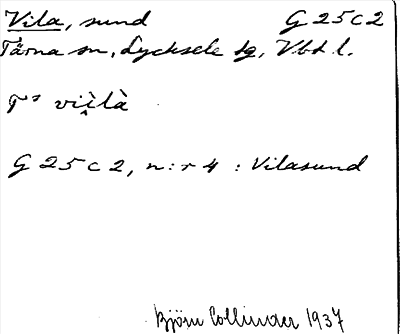 Vila, sund G 25 c 2
Tärna sn, Lycksele tg, Vbt l.
vìlà
G 25 c 2, n:r 4 : Vilasund
Björn Collinder 1937